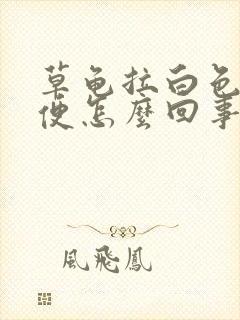 草龟拉白色
便怎麼回事
風飛鳳